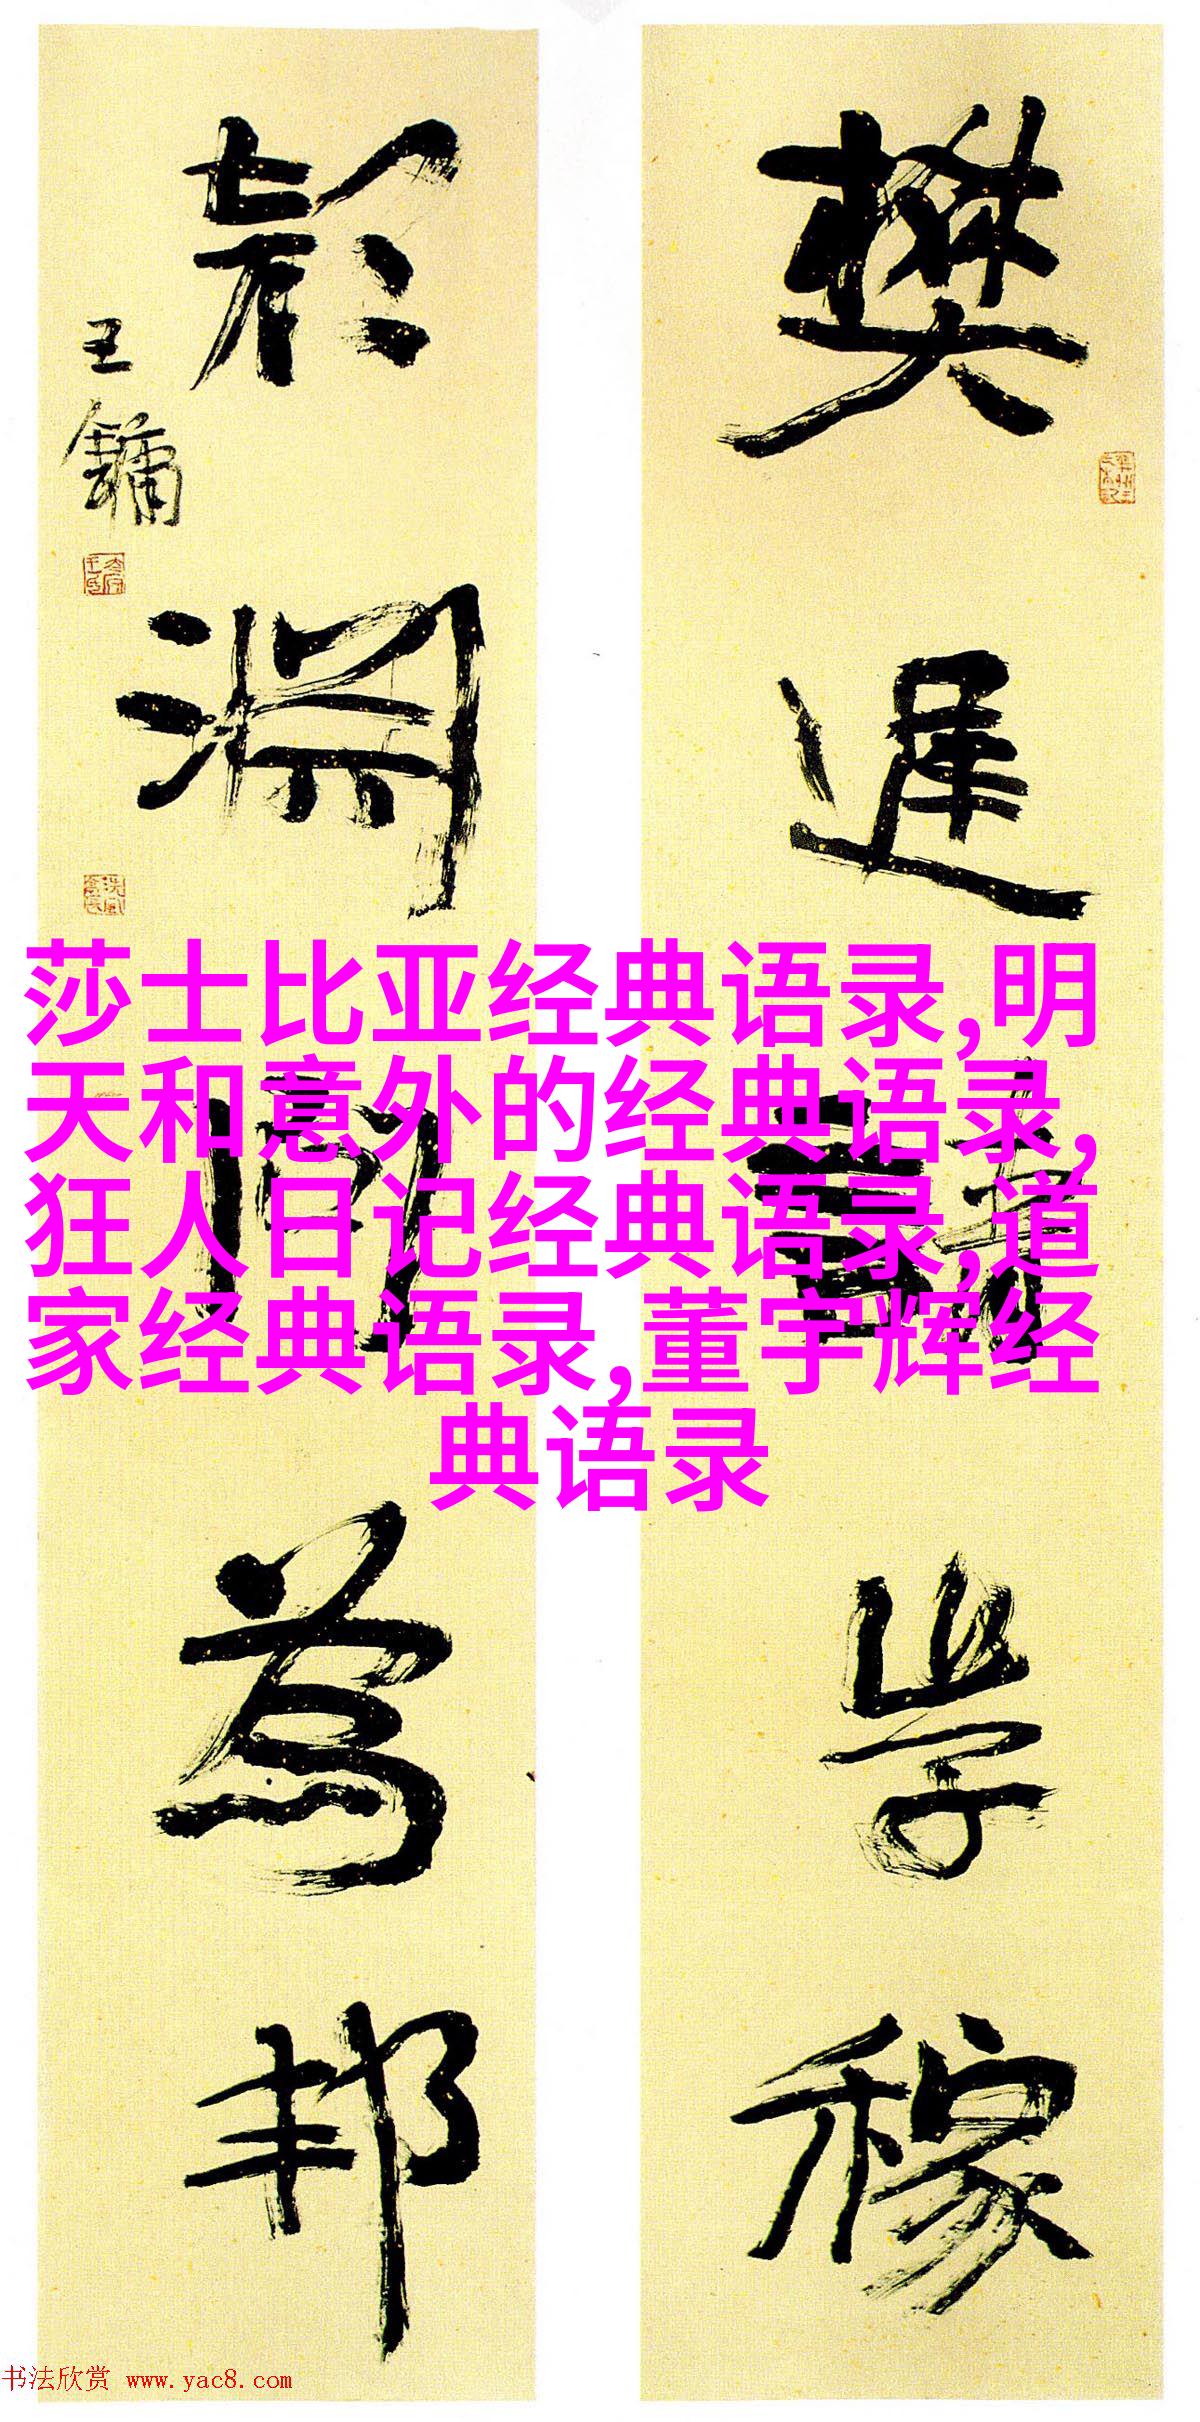 樊遲請學稼
顏淵問為邦
王鏞
莎士比亚经典语录,明
天和意外的经典语录,
狂人日记经典语录,道
家经典语录,董宇辉经
典语录
书法欣赏 www.yac8.com